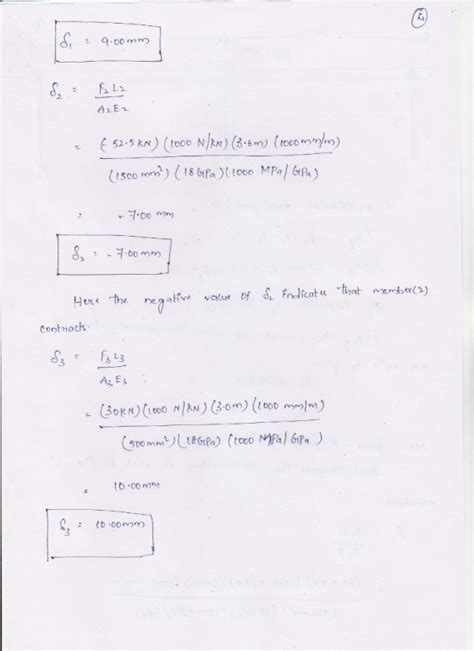 4
δ₁ = 9.00mm
δ₂ = F₂L₂
A₂E₂
= (-52.5kN)(1000 N/kN)(3.6m)(1000mm/m)
(1500 mm²)(18GPa)(1000 MPa/GPa)
= -7.00 mm
δ₂ = -7.00mm
Here the negative value of δ₂ indicates that member(2)
contracts.
δ₃ = F₃L₃
A₂E₃
= (30kN)(1000 N/kN)(3.0m)(1000 mm/m)
(500mm²)(18GPa)(1000 MPa/GPa)
= 10.00mm
δ₃ = 10.00mm